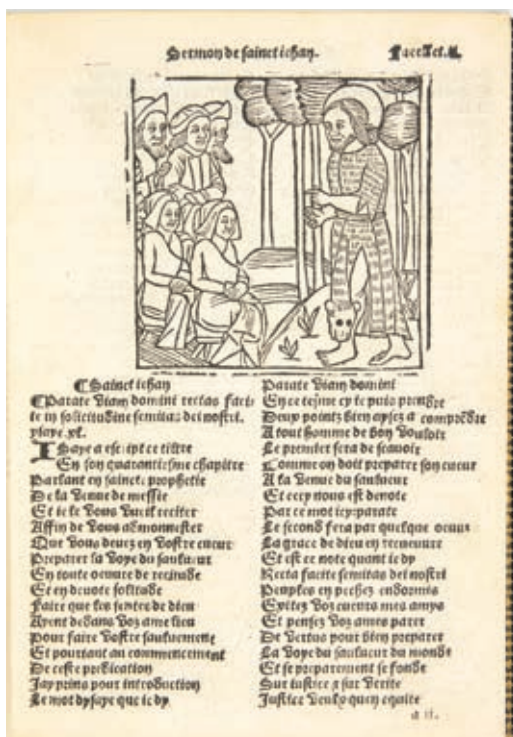 Sermon de sainct iehan.
¶Sainct iehan
¶Parate viam domini rectas faci-
te in solicitudine semitas dei nostri.
ysaye. xl.
ISaye a escript ce tiltre
En son quarantiesme chapitre
Parlant en saincte prophetie
De la venue de messie
Et ie le vous vueil reciter
Affin de vous admonnester
Que vous deuez en vostre cueur
Preparer la voye du saulueur
En toute oeuure de rectitude
Et en deuote solitude
Faire que les sentes de dieu
Ayent dedans voz ame lieu
Pour faire vostre sauluement
Et pourtant au commencement
De ceste predication
Jay prins pour introduction
Le mot dysaye que ie dy
Parate viam domini
En ce tesme cy ie puis prendre
Deux pointz bien aysez a comprēdre
A tout homme de bon vouloir
Le premier sera de scauoir
Comme on doit preparer son cueur
A la venue du saulueur
Et cecy nous est denote
Par ce mot icy: parate
Le second sera par quelque oeuure
La grace de dieu en recueuure
Et est ce note quant ie dy
Recta facite semitas dei nostri
Peuples en pechez endormis
Esuitez voz cueurs mes amys
Et pensez voz ames parer
De vertus pour bien preparer
La voye du saulueur du monde
Et se preparement se fonde
Sur iustice a sur verite
Justice veult quen equite
a ii.